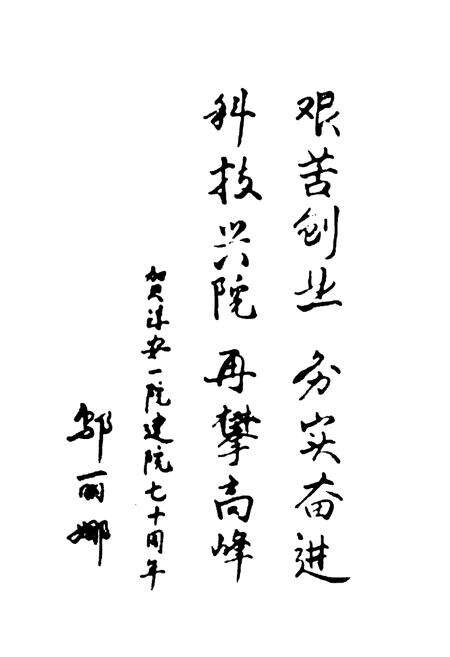 艰苦创业 务实奋进
科技兴院 再攀高峰
贺淮安一院建院七十周年
邬丽娜